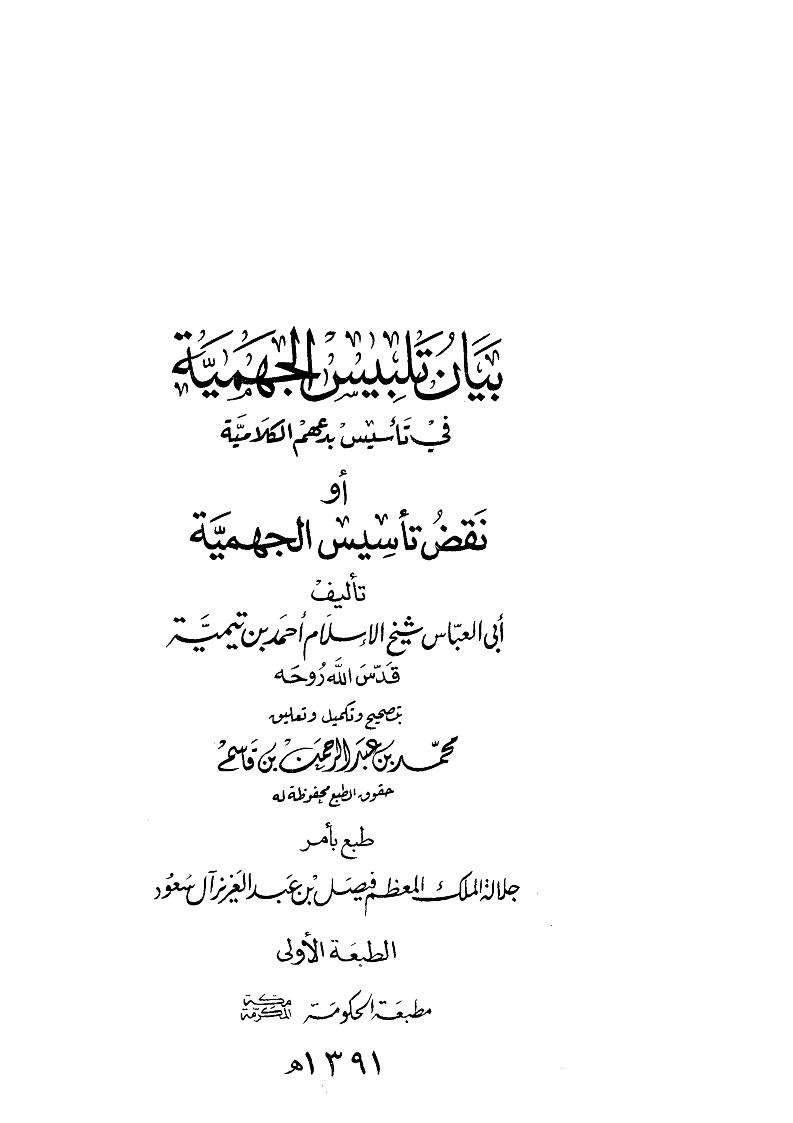 بَيَانُ تَلْبِيسِ الجَهْمِيَّة
في تَأسيسِ بدعهم الكلاميَّة
أو
نَقضُ تأسِيسِ الجهميَّة
تأليف
أبي العبّاس شيخ الإسلام أحمد بن تيميَّة
قدّسَ اللّه رُوحَه
بتصحيح وتكميل وتعليق
محمّد بن عبد الرحمن بن قاسم
حقوق الطبع محفوظة له
طبع بأمر
جلالة الملك المعظم فيصل بن عبد العزيز آل سعود
الطبعَة الأولى
مطبعَة الحكومَة مكة المكرمة
١٣٩١ھ